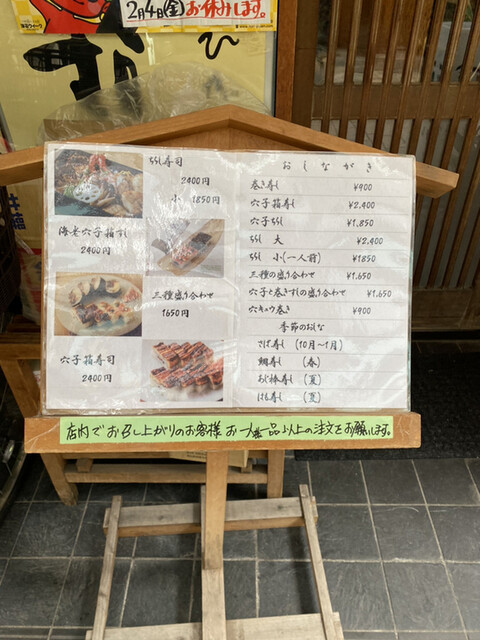 2月4日(金)お休みします。
ちらし寿司
2400円
小 1850円
海老穴子箱すし
2400円
三種盛り合わせ
1650円
穴子箱寿司
2400円
おしながき
巻き寿し ¥900
穴子箱寿し ¥2,400
穴子ちらし ¥1,850
ちらし 大 ¥2,400
ちらし 小(一人前) ¥1850
三種の盛り合わせ ¥1,650
穴子と巻きすしの盛り合わせ ¥1,650
穴キュウ巻き ¥900
季節のおしな
さば寿し (10月〜1月)
鯛寿し (春)
あじ棒寿し (夏)
はも寿し (夏)
店内でお召し上がりのお客様お一人様一品以上の注文をお願いします。